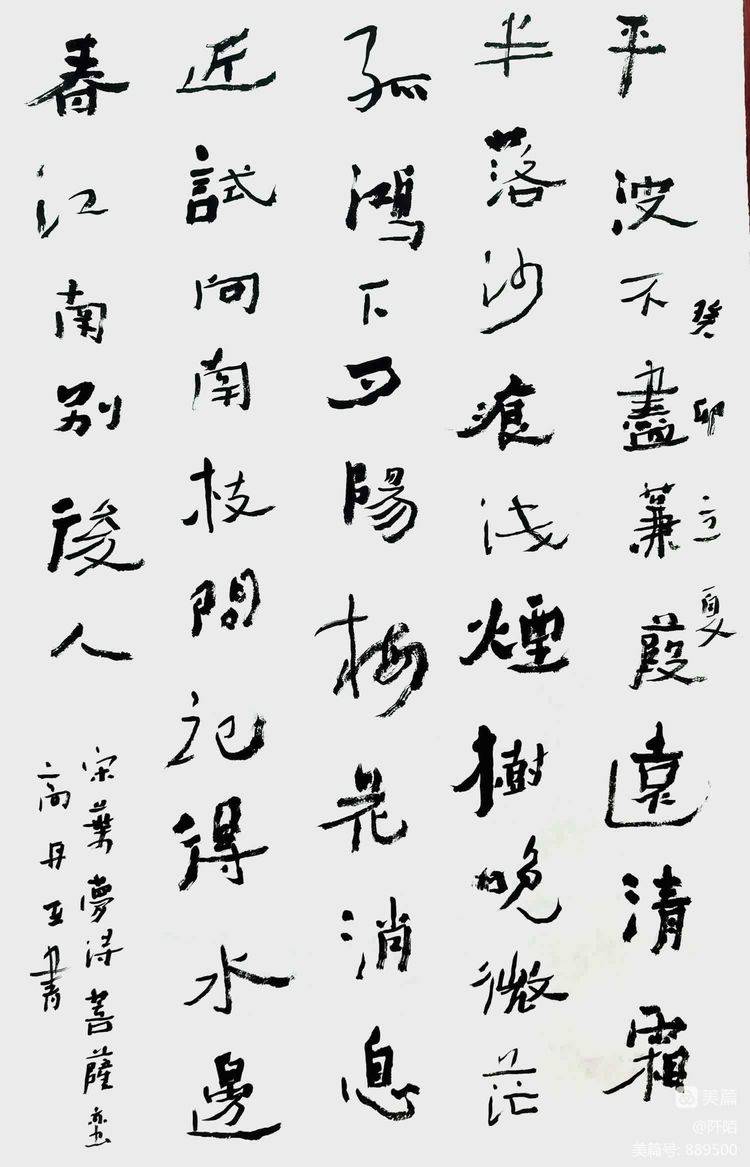 癸卯立夏
平波不盡蒹葭遠清霜
半落沙痕淺煙樹晚微茫
孤鴻下夕陽梅花消息
近試向南枝問記得水邊
春江南別後人
宋葉夢得菩薩蛮
高丹書
美篇
@阡陌
美篇号: 889500